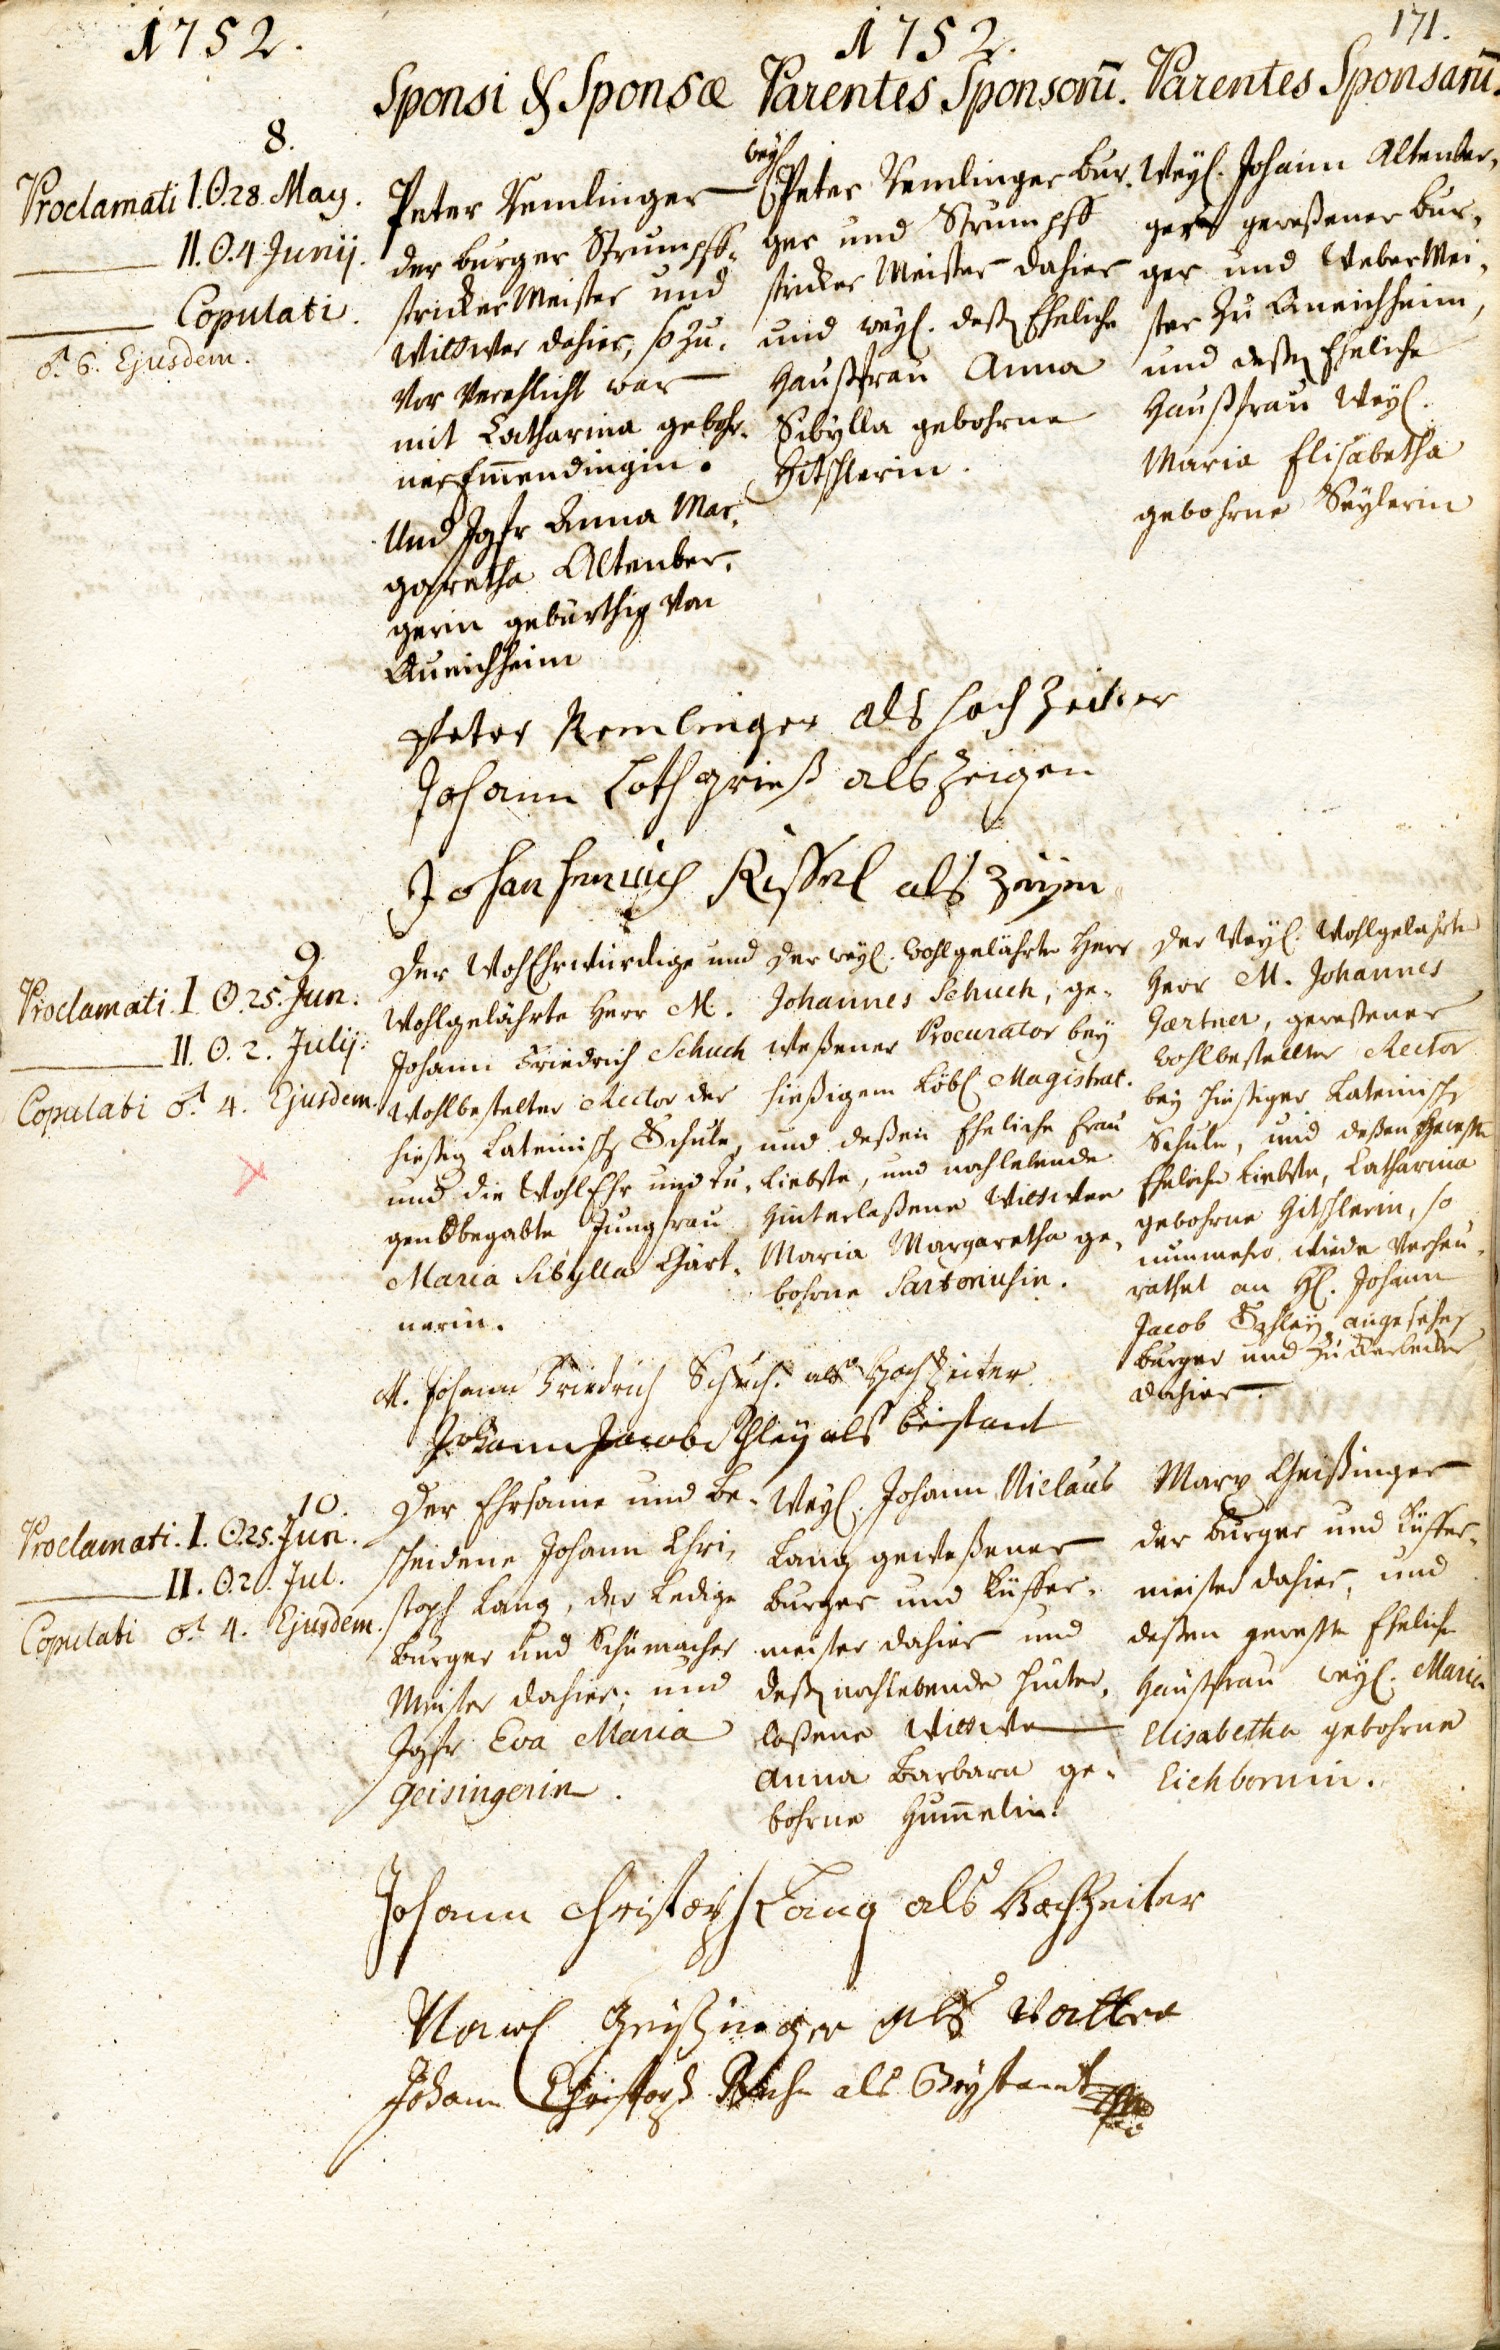 1752.
1752.
171.
Sponsi & Sponsæ
Parentes Sponsorū.
Parentes Sponsarū.
8.
Proclamati I. ☉. 28. May.
II. ☉. 4. Junij.
Copulati.
♂. 6. Ejusdem.
Peter Remlinger
der burger Strumpff-
stricker Meister und
Wittwer dahier, so zu-
vor verehlicht war
mit Catharina gebohr-
ner Em̄endingin.
Und Jgfr Anna Mar-
garetha Altenber-
gerin gebürthig von
Queichheim
weyl.
Peter Remlinger bur-
ger und Strumpff
stricker Meister dahier
und weyl. deßen Eheliche
Haußfrau Anna
Sibylla gebohrne
Hitschlerin.
Weyl. Johann Altenber-
ger geweßener bur-
ger und Weber Mei-
ster zu Queichheim,
und deßen Eheliche
Haußfrau Weyl.
Maria Elisabetha
gebohrne Seylerin
Peter Remlinger als hoch Zeiter
Johann Loth grieß als Zeigen
Johan Henrich Kissel als Zeugen
9.
Proclamati. I ☉. 25. Jun.
II. ☉. 2. Julij.
Copulati ♂. 4. Ejusdem.
Der WohlEhrwürdige und
Wohlgelährte Herr M.
Johann Friedrich Schuch
Wohlbestelter Rector der
hießig Lateinisch Schule,
und die WohlEhr und Tu-
gendbegabte Jungfrau
Maria Sibylla Gärt-
nerin.
Der weyl. Wohlgelährte Herr
Johannes Schuch, ge-
weßener Procurator bey
hießigem Löbl. Magistrat.
und deßen Eheliche Frau
Liebste, und nachlebende
Hinterlaßene Wittwee
Maria Margaretha ge-
bohrne Sartoriusin.
Der Weyl. Wohlgelahrte
Herr M. Johannes
Gærtner, geweßener
Wohlbestellter Rector
bey hießiger Lateinisch
Schule, und deßen geweste
Eheliche Liebste, Catharina
gebohrne Hitschlerin, so
nunmehro wieder verheu-
rathet an H. Johann
Jacob Schley angesehen
burger und
dahier.
M. Johann Friedrich Schuch. als Hochzeiter
Johann Jacob Schley als beistant
10.
Proclamati. I. ☉. 25. Jun.
II. ☉. 2. Jul.
Copulati ♂. 4. Ejusdem.
Der Ehrsame und be-
scheidene Johann Chri-
stoph Lang, der Ledige
burger und Schumacher
Meister dahier; und
Jgfr Eva Maria
Geisingerin.
Weyl. Johann Niclaus
Lang geweßener
burger und Küffer-
meister dahier und
deßen nachlebende hinter-
laßene Wittwe
Anna Barbara ge-
bohrne Hum̄elin.
Marx Geißinger
der burger und Küffer-
meister dahier, und
deßen geweste Eheliche
Haußfrau weyl. Maria
Elisabetha gebohrne
Eichbornin.
Johann christoph Lang als Hochzeiter
Marx Geißinger als Vatter
Johann Christoph als Beystandt